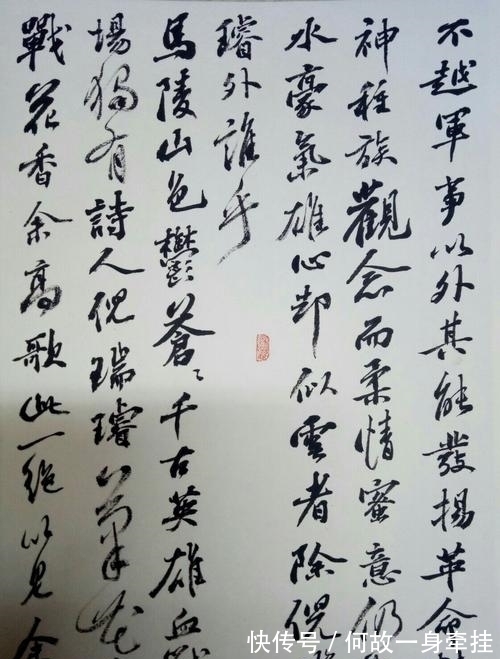 不越軍事以外其能發揚革命
神種族觀念而柔情蜜意仍
水豪氣雄心却似雲者除倪
璿外誰乎
馬陵山色鬱蒼〻千古英雄血戰
場獨有詩人倪瑞璿筆
戰花香余高歌此一絕以見余
快传号/何故一身牵挂